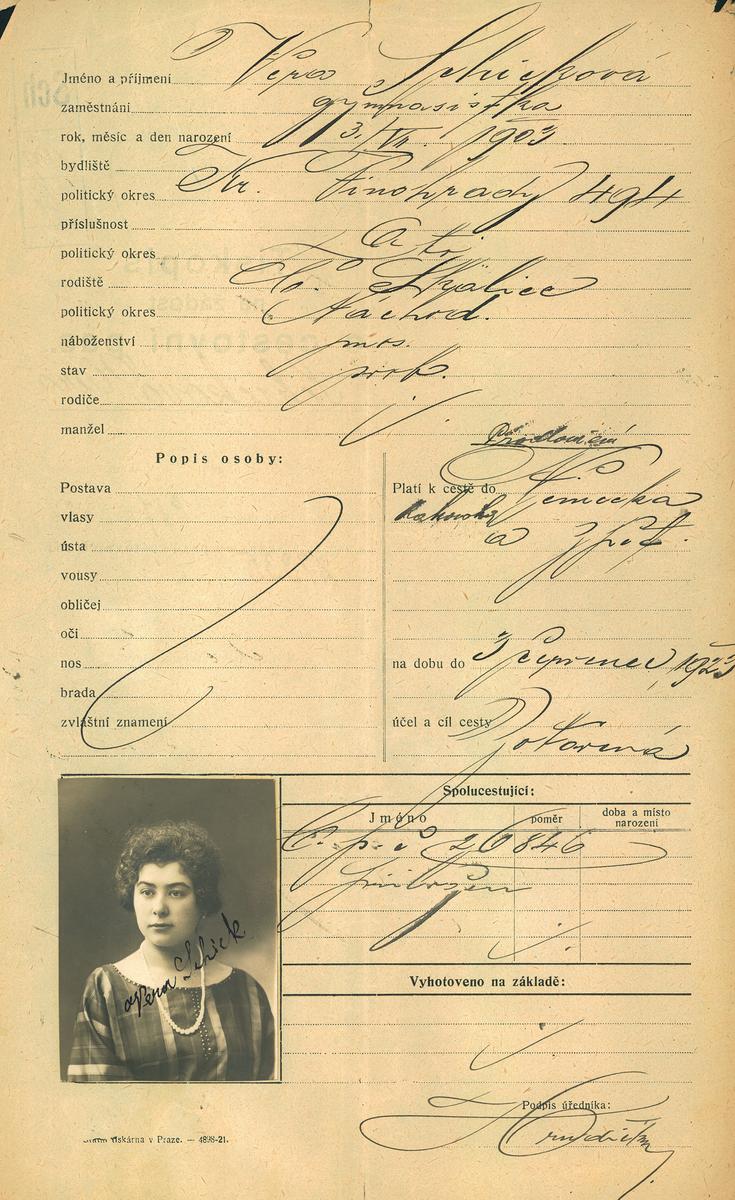 Jméno a příjmení Věra Schicková
zaměstnání gymnasistka
rok, měsíc a den narození 3/VII. 1903
bydliště
politický okres Kr. Vinohrady 494
příslušnost
politický okres
rodiště Č. Skalice
politický okres Náchod.
náboženství
stav
rodiče
manžel
Popis osoby:
Postava
vlasy
ústa
vousy
obličej
oči
nos
brada
zvláštní znamení
Prodloužení
Platí k cestě do Německa
Rakouska
a zpět.
na dobu do 3 červenec 1923
účel a cíl cesty
Spolucestující:
Jméno
poměr
doba a místo narození
Č. p. 20846
Vyhotoveno na základě:
Věra Schick
Podpis úředníka:
Státní tiskárna v Praze. — 4898-21.